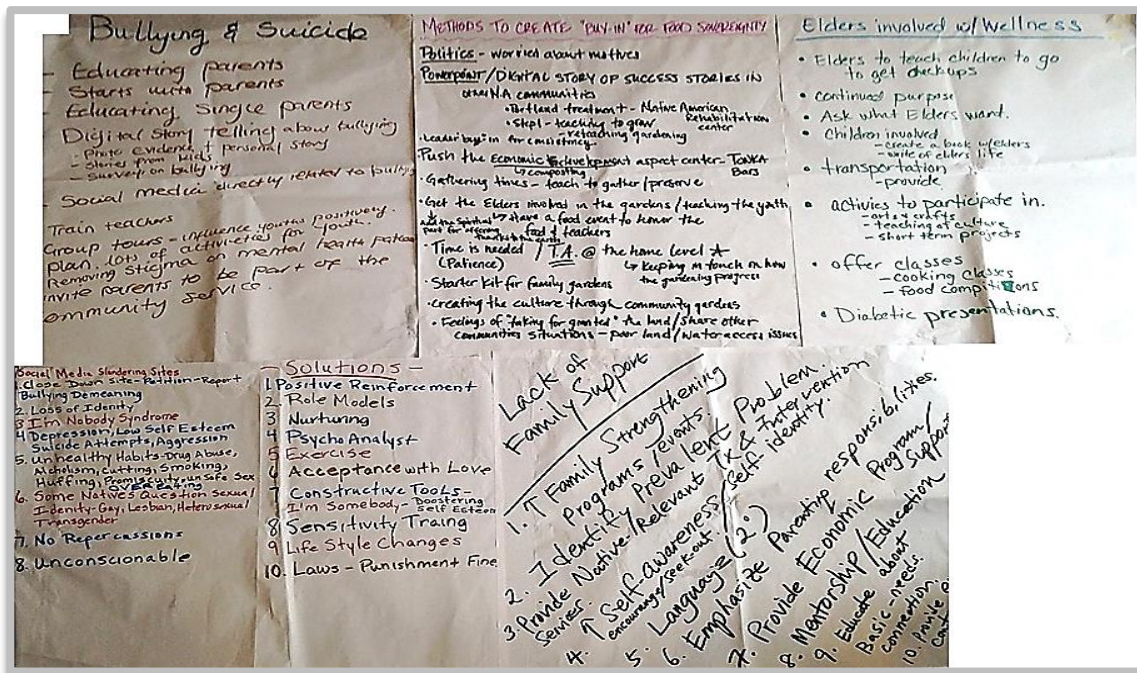 Bullying & Suicide
- Educating parents
- Starts with parents
- Educating Single parents
Digital Story telling about bullying
- Photo evidence & personal story
- Stories from kids
- Survey on bullying
- Social media directly related to bullying
Train teachers
Group tours - influence youths positively.
plan lots of activities for youth.
Removing Stigma on mental health
invite parents to be part of the
ommunity Service.
METHODS TO CREATE "BUY-IN" FOR FOOD SOVEREIGNTY
Politics - worried about motives
Powerpoint/DIGITAL STORY OF SUCCESS STORIES IN
other N.A communities
Portland treatment - Native American
Rehabilitation
center
Step 1 - teaching to grow
- reteaching gardening
Leader buy in for consistency
Push the Economic Development aspect center - TONKA
Bars
composting
Gathering times - teach to gather/preserve
Get the Elders involved in the gardens/teaching the youth
add the Spiritual
part for offering
thanks to the earth
have a food event to honor the
food & teachers
Time is needed / T.A. @ the home level
(Patience)
keeping in touch on how
the gardening progress
Starter kit for family gardens
Creating the culture through community gardens
Feelings of "taking for granted" the land/share other
communities situations - poor land/water access issues
Elders involved w/ Wellness
• Elders to teach children to go
to get checkups
• continued purpose
• Ask what Elders want.
• Children involved
- create a book w/elders
- write of elders life
• transportation
- provide
• activies to participate in.
- arts & crafts
- teaching of culture
- short term projects
• offer classes
- cooking classes
- food compitions
• Diabetic presentations.
Social Media Slandering Sites
1. Close Down Site - Petition - Report
Bullying Demeaning
2. Loss of Idenity
3 I'm Nobody Syndrome
4 Depression, Low Self Esteem
Suicide Attempts, Aggression
5. Unhealthy Habits - Drug Abuse,
Alcholism, Cutting, Smoking,
Huffing, Promiscuity, un Safe Sex
OVEREATING
6. Some Natives Question Sexual
Idenity - Gay, Lesbian, Heterosexual
Transgender
7. No Repercassions
8. Unconscionable
- Solutions -
1. Positive Reinforcement
2 Role Models
3 Nurturing
4 PsychoAnalyst
5 Exercise
6 Acceptance with Love
7 Constructive Tools -
I'm Somebody - Boostering
Self Esteem
8 Sensitivity Traing
9 Life Style Changes
10. Laws - Punishment Fine
Lack of
Family Support
1. ↑ Family Strengthening
Programs/events.
2. Identify Prevalent Problem.
3. Provide Native/Relevant Tx & Intervention
Services.
4. ↑ Self-awareness/self-identity.
encourage/seek-out
5. Language (2°)
6. Emphasize Parenting responsibilities.
7. Provide Economic Program/
8. Mentorship/Education Support
9. Educate about
Basic-needs.
connection.
10. Provide